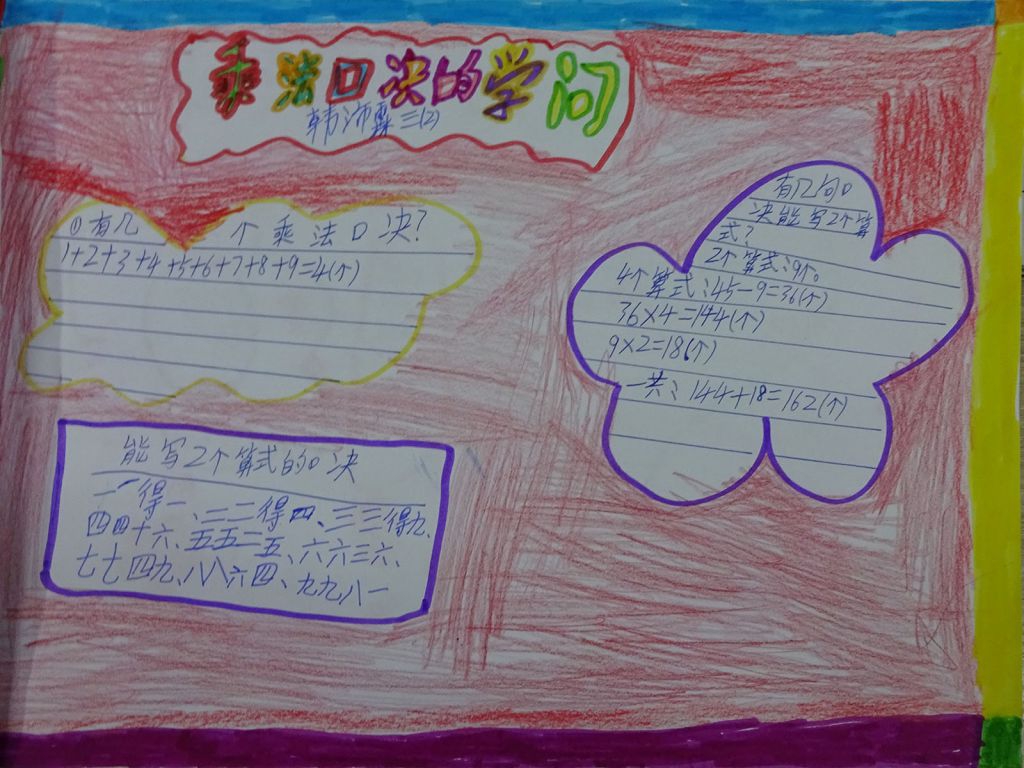 乘法口决的学问
韩沛霖 三(2)
①有几 个乘法口决?
1+2+3+4+5+6+7+8+9=4(个)
有几句口
决能写2个算
式?
2个算式:9个。
4个算式:45-9=36(个)
36×4=144(个)
9×2=18(个)
一共:144+18=162(个)
能写2个算式的口决
一一得一、二二得四、三三得九、
四四十六、五五二五、六六三六、
七七四九、八八六四、九九八一